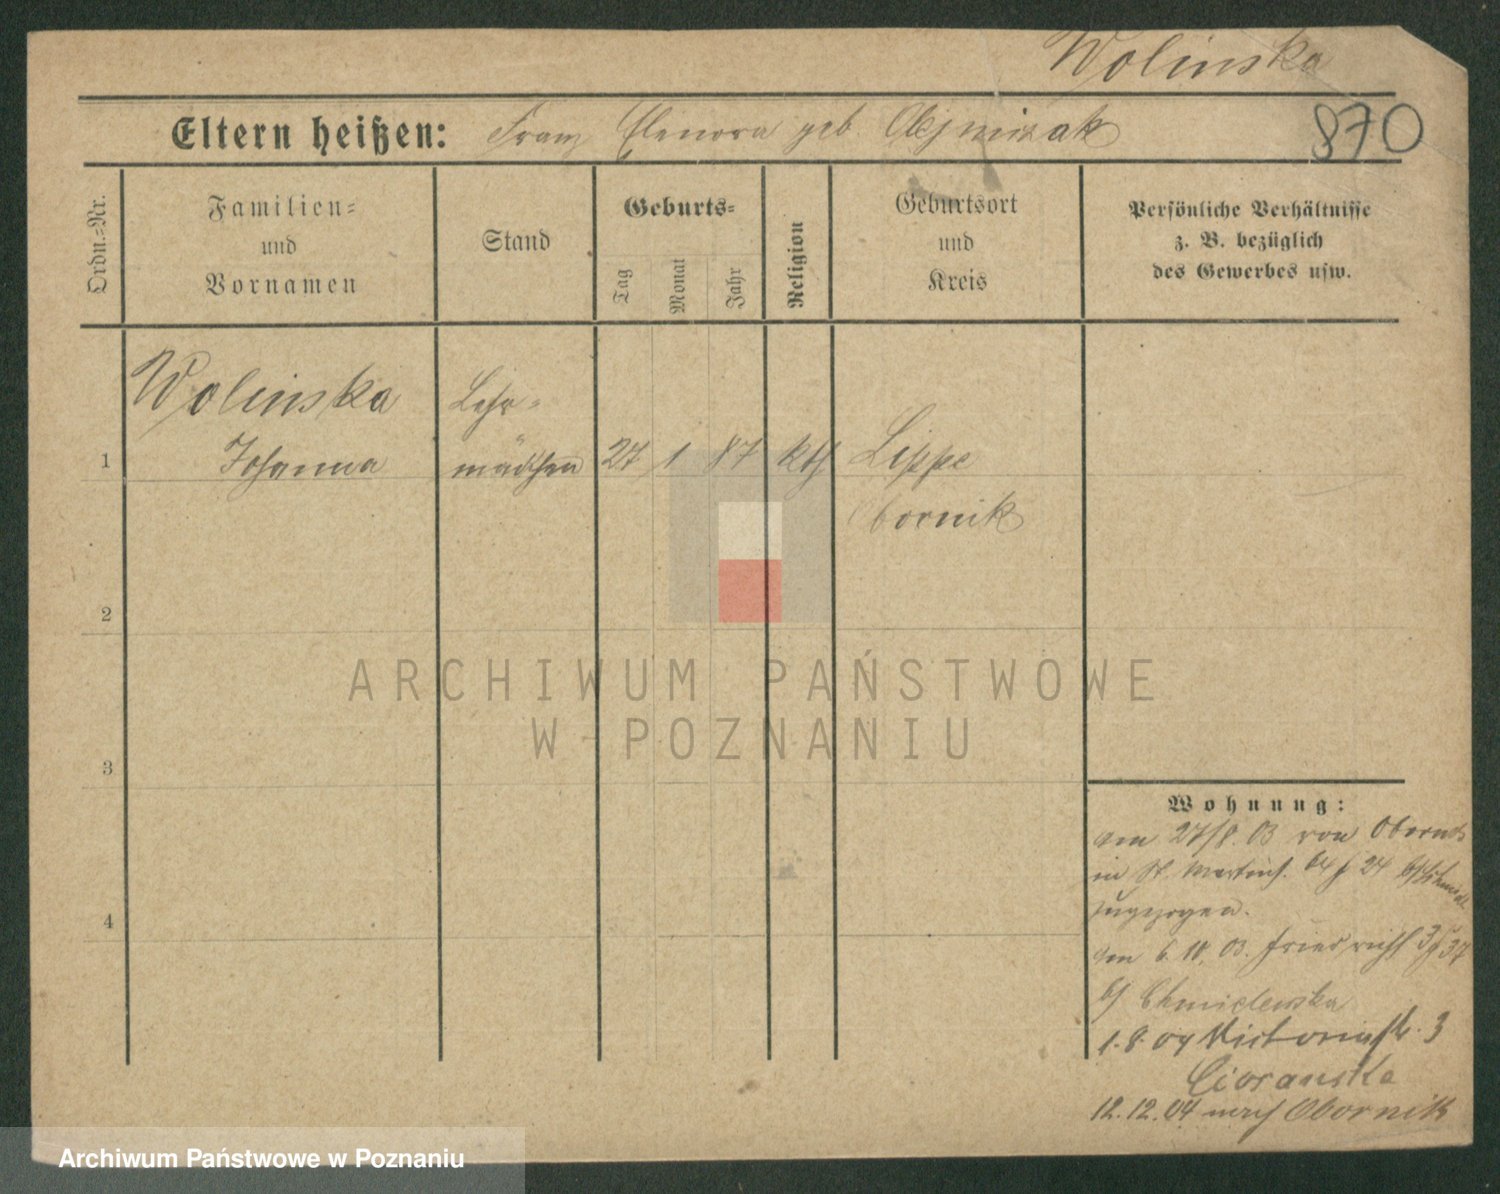 Wolinska
870
Eltern heißen: Franz Elenora geb.
Ordn.-Nr.
Familien-
und
Vornamen
Stand
Geburts-
Tag
Monat
Jahr
Religion
Geburtsort
und
Kreis
Persönliche Verhältnisse
z. B. bezüglich
des Gewerbes usw.
Wolinska Lehr-
1 Johanna mädchen 27 1 87 kth Lippe
Obornik
2
3
4
Wohnung:
am 27/8. 03 von Obornik
in St. Martinst. 64 24
zugezogen.
am 6. 10. 03. Friedrichst 37
b/ Chmielewska
1.8.04 Victoriastr. 3
Cioranska
12.12.04 nach Obornik
ARCHIWUM PAŃSTWOWE
W POZNANIU
Archiwum Państwowe w Poznaniu